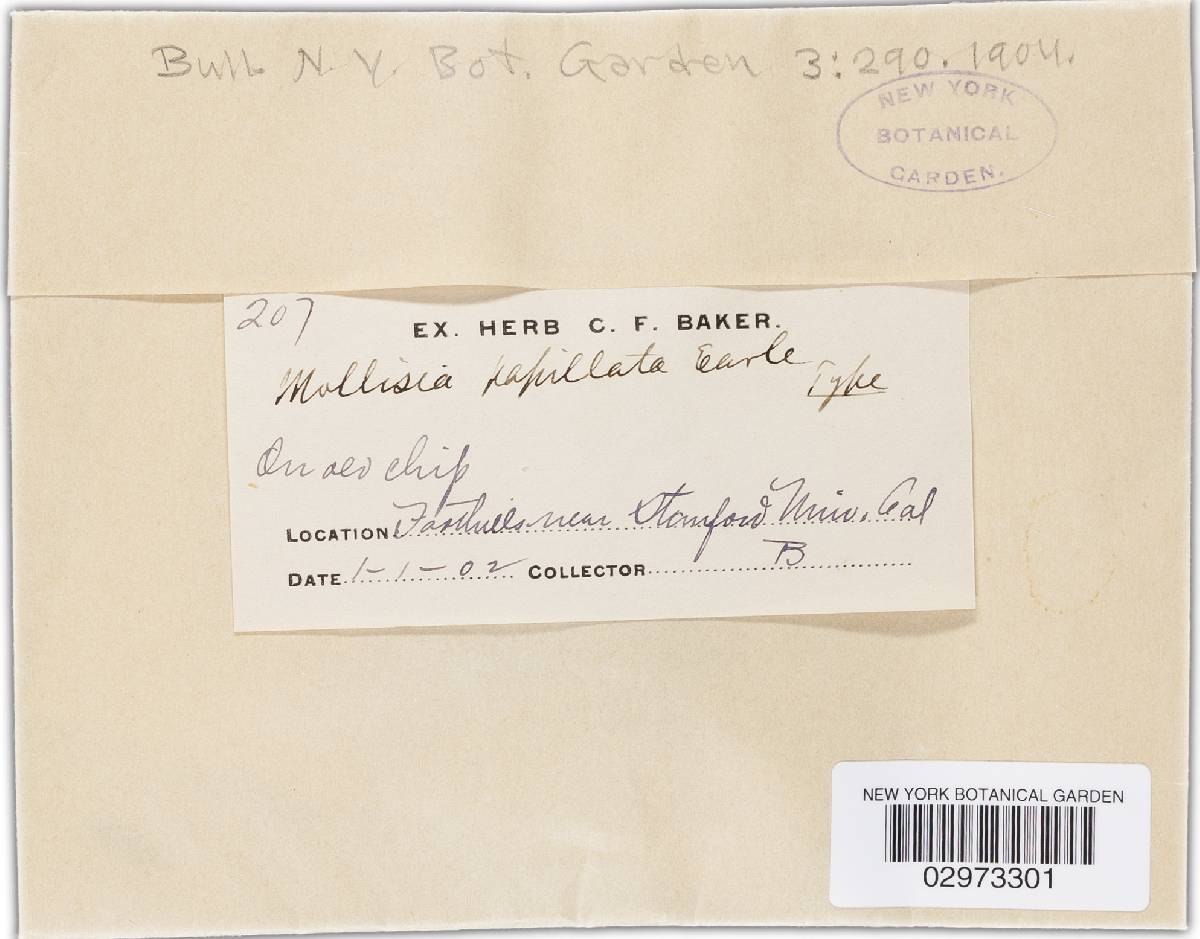 Bull. N. Y. Bot. Garden 3:290. 1904.
NEW YORK
BOTANICAL
GARDEN.
207
EX. HERB C. F. BAKER.
Mollisia papillata Earle
Type
On old chip
LOCATION Foothills near Stanford Univ. Cal
DATE 1-1-02 COLLECTOR B
NEW YORK BOTANICAL GARDEN
02973301